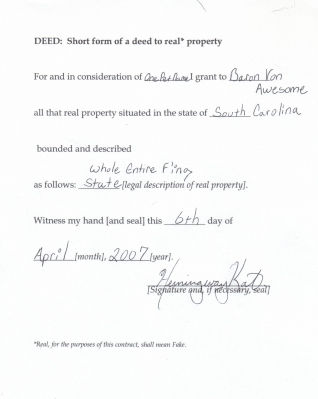 DEED: Short form of a deed to real* property
For and in consideration of One I grant to Baron Von
Awesome
all that real property situated in the state of South Carolina
bounded and described
Whole Entire
as follows: State [legal description of real property].
Witness my hand [and seal] this 6th day of
April [month], 2007 [year].
Hemingway
[Signature and, if necessary, seal]
*Real, for the purposes of this contract, shall mean Fake.